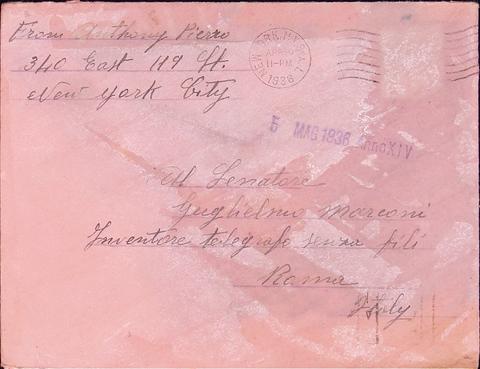 From Anthony Pierro
340 East 119 St.
New York City
NEW YORK, N.Y. G.A.L.
APR
11-PM
1936
5 MAG 1936 Anno XIV
Al Senatore
Guglielmo Marconi
Inventore telegrafo senza fili
Roma
Italy